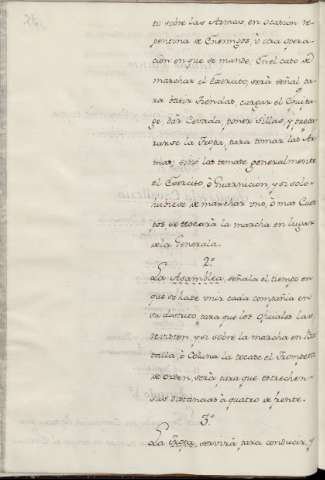 te sobre las Armas, en ocasion re-
pentina de Enemigos, ò otra opera-
cion en que se mande. En el caso de
marchar el Exercito, será señal pa-
ra batir Tiendas, cargar el Equipa-
ge, dar Cevada, poner Sillas, y prepa-
rarse la Tropa, para tomar las Ar-
mas, si no las tomase generalmente
el Exercito, ò Guarnicion, y si sola-
hubiese de marchar uno, ò mas Cuer-
pos se tocará la marcha en lugar
de la Generala.
2º
La Asamblea, señala el tiempo en
que se hade unir cada compañia en
su distrito, para que los Oficiales las
revisten, y si sobre la marcha en Ba-
talla, ò Coluna la tocase el Trompeta
de orden, será para que estrechen
sus distancias à quatro de frente.
3º
La Tropa, servirá para conducir, y